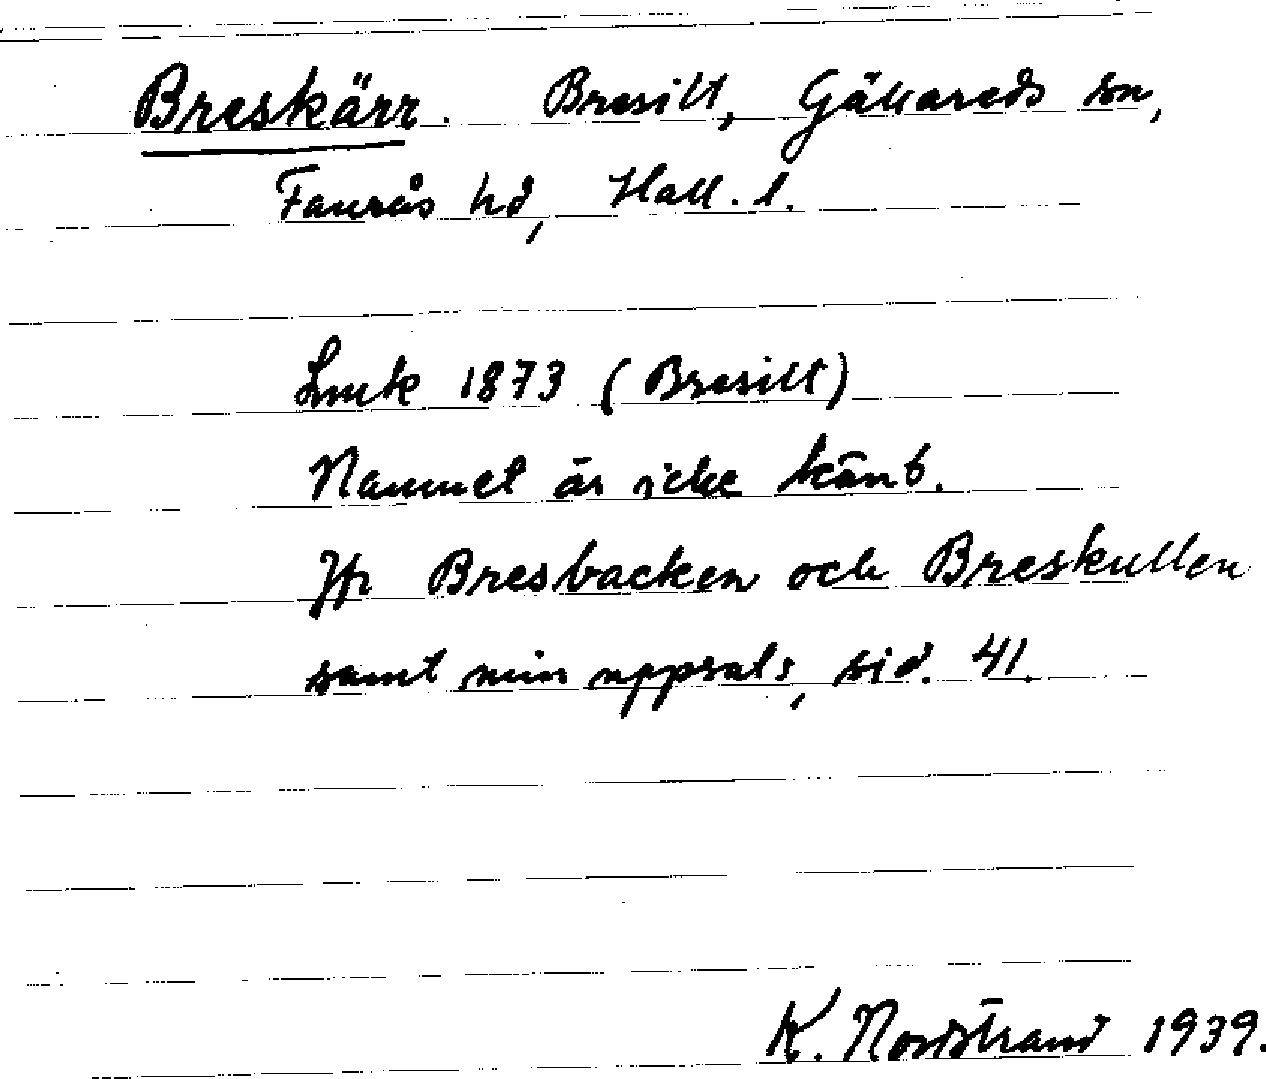 Breskärr. Bresilt, Gällareds sn,
Faurås hd, Hall. l.
Lmtk 1873 (Bresilt)
Namnet är icke känt.
Jfr Bresbacken och Breskullen
samt min uppsats, sid. 41.
K. Nordstrand 1939.